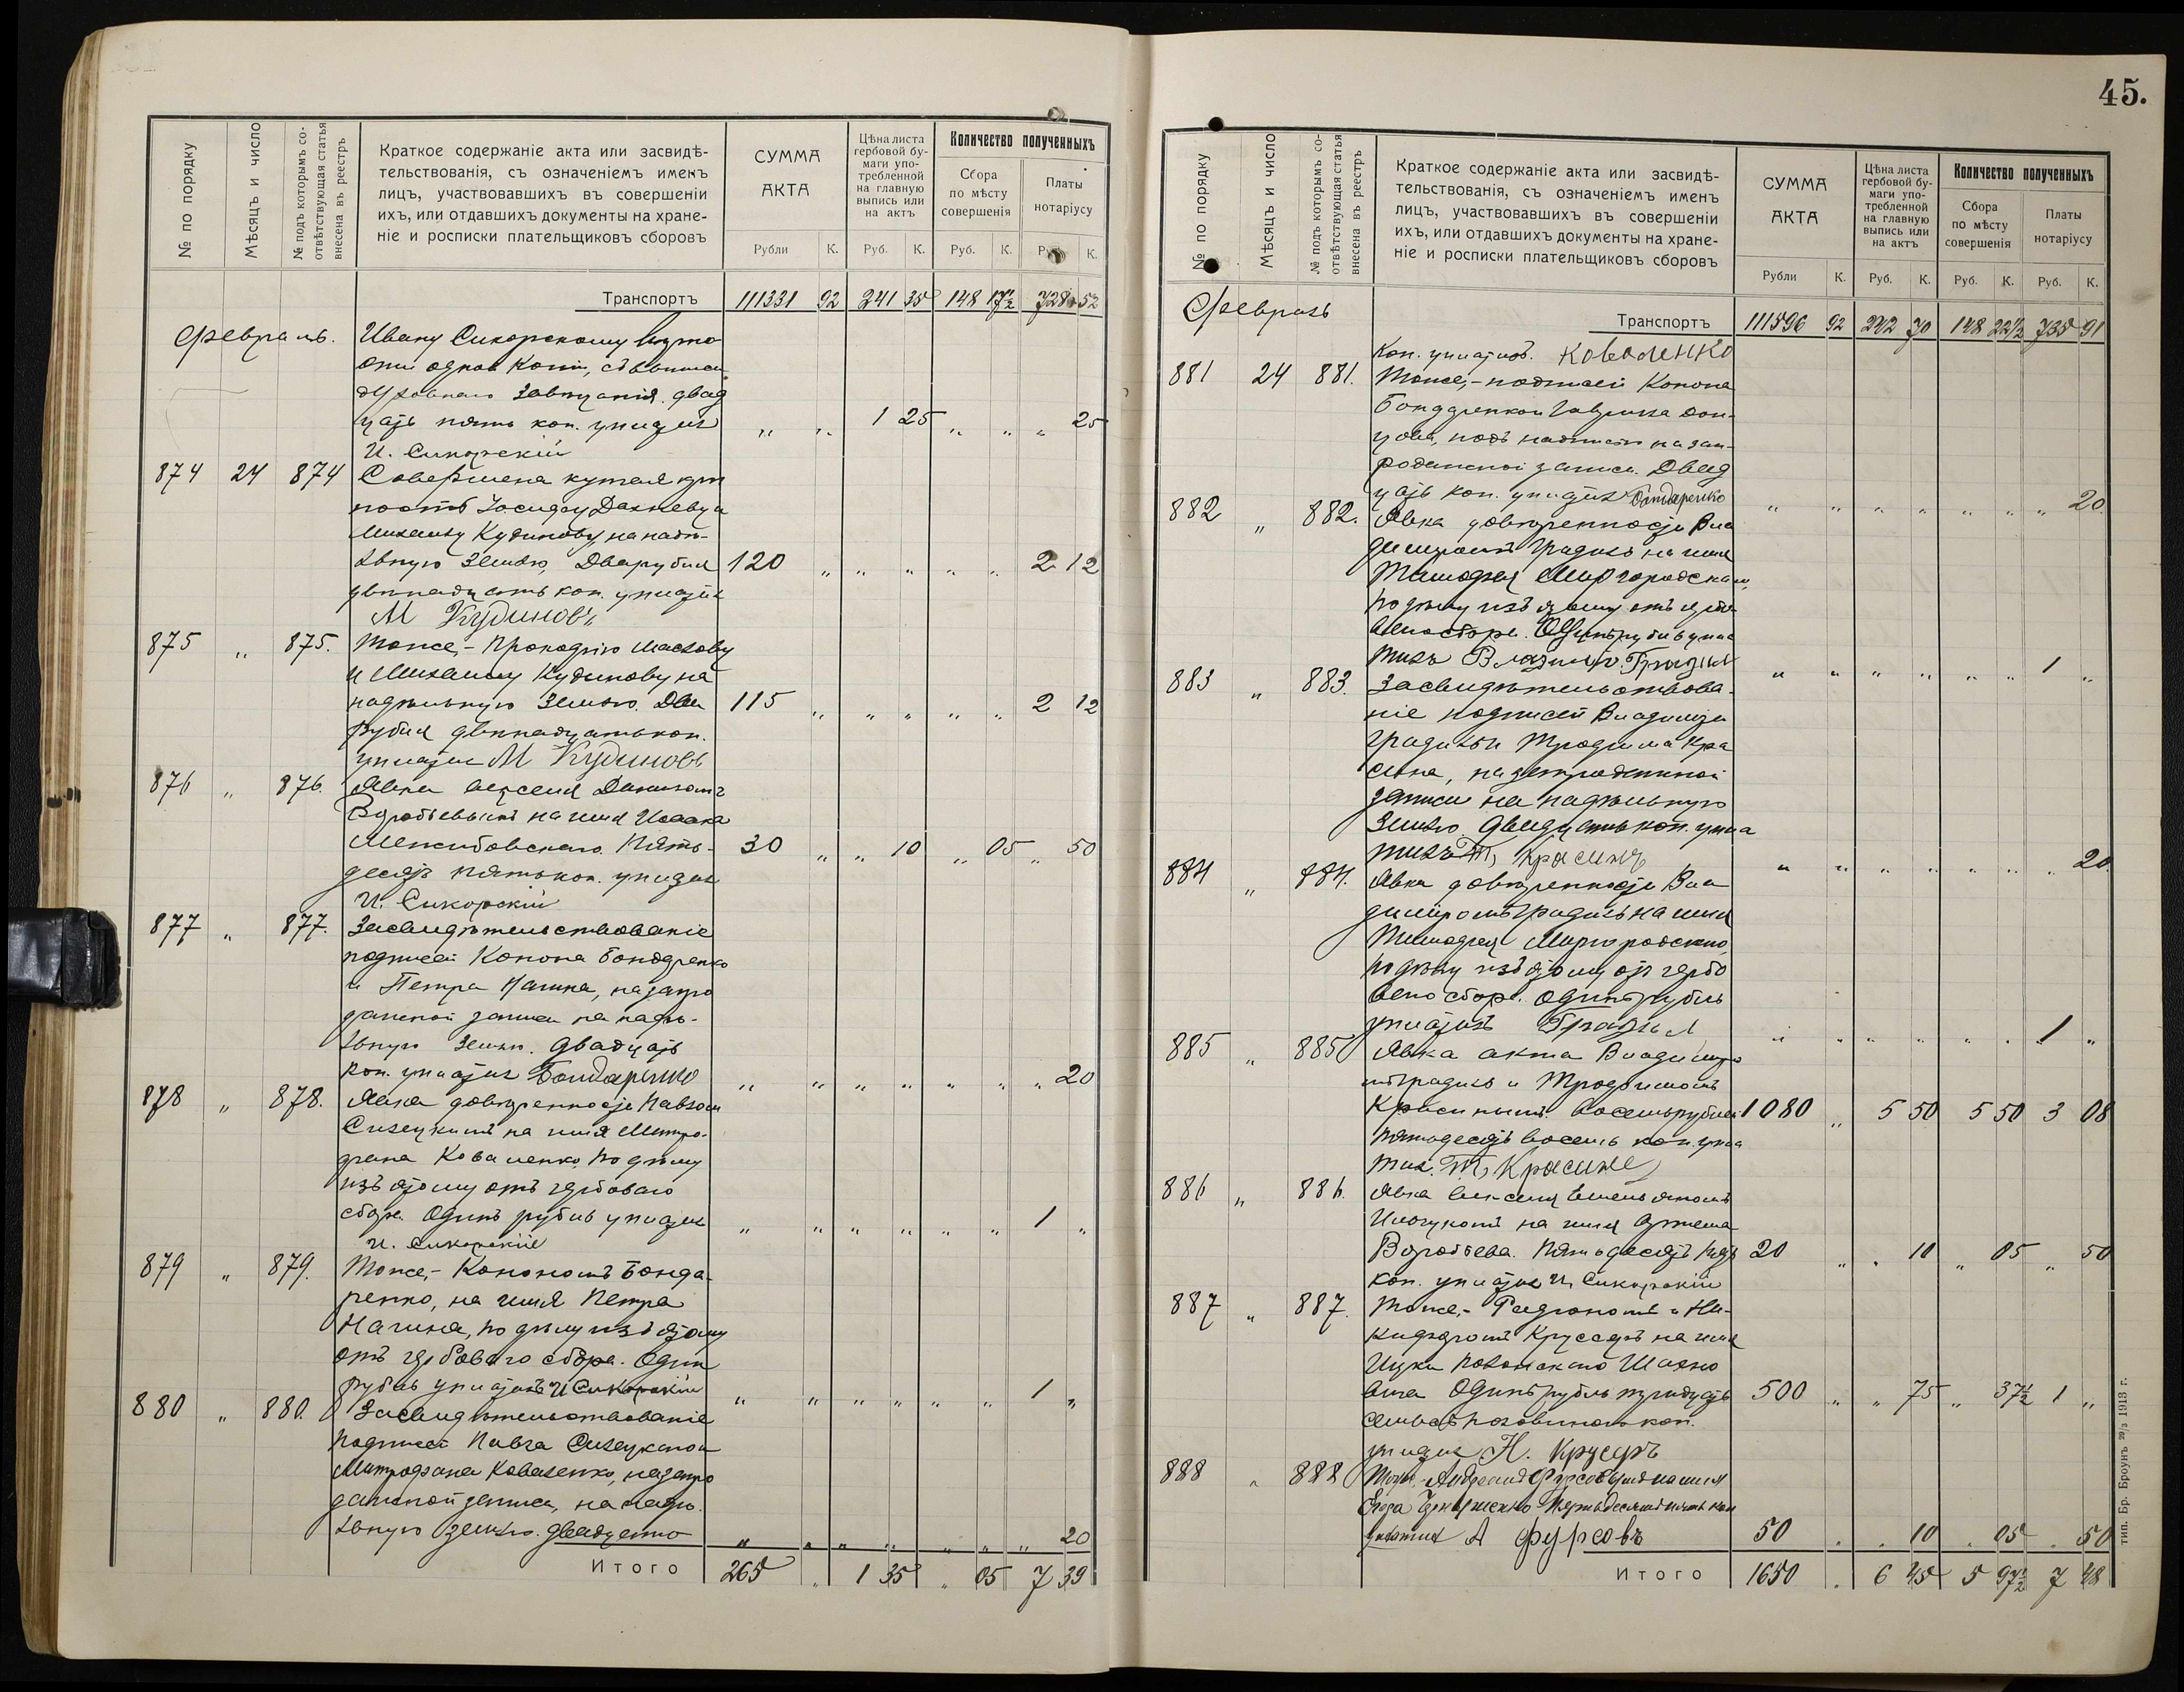 № по порядку
Мѣсяцъ и число
№ подъ которымъ со-
отвѣтствующая статья
внесена въ реестръ
Краткое содержаніе акта или засвидѣ-
тельствованія, съ означеніемъ именъ
лицъ, участвовавшихъ въ совершеніи
ихъ, или отдавшихъ документы на хране-
ніе и росписки плательщиковъ сборовъ
СУММА
АКТА
Рубли К.
Цѣна листа
гербовой бу-
маги упо-
требленной
на главную
выпись или
на актъ
Руб. К.
Количество полученныхъ
Сбора
по мѣсту
совершенія
Руб. К.
Платы
нотаріусу
К.
Транспортъ 111331 92 241 35 148 17½ 728 52
Февраль. Ивану Сикорскому
одна копія, съ выписи
духовнаго завѣщанія. двад
цать пять коп. уплатилъ „ „ 1 25 „ „ „ 25
И. Сикорскій
874 24 874 Совершена купчая крѣ
пость
Михаилу Кудинову на надѣ-
льную землю, Два рубля 120 „ „ „ „ „ 2 12
двѣнадцать коп. уплатилъ
М Кудиновъ
875 „ 875. Тоже,- Прокофію Маслову
и Михаилу Кудинову на
надѣльную землю. Два 115 „ „ „ „ „ 2 12
рубля двѣнадцать коп.
уплатилъ М Кудиновъ
876 „ 876. Явка векселя
Воробьевымъ на имя Исаака
Межибовскаго. Пять- 30 „ „ 10 „ 05 „ 50
десятъ пять коп. уплатилъ
И. Сикорскій
877 „ 877. Засвидѣтельствованіе
подписей Конона Бондаренко
и Петра Нагина, на запро
данной записи на надѣ-
льную землю. двадцать
коп. уплатилъ Бондаренко „ „ „ „ „ „ „ 20
878 „ 878. Явка довѣренности Павломъ
на имя Митро-
фана Коваленко по дѣлу
изъятому отъ гербоваго
сбора. Одинъ рубль уплатилъ „ „ „ „ „ „ 1 „
И. Сикорскій
879 „ 879. Тоже,- Конономъ Бонда-
ренко, на имя Петра
Нагина, по дѣлу изъятому
отъ гербоваго сбора. Одинъ
рубль уплатилъ И Сикорскій „ „ „ „ „ „ 1 „
880 „ 880. Засвидѣтельствованіе
подписей Павла
Митрофана Коваленко, на запро
данной записи, на надѣ-
льную землю. двадцать „ „ „ „ „ „ „ 20
Итого 265 „ 1 35 „ 05 7 39
45.
№ по порядку
Мѣсяцъ и число
№ подъ которымъ со-
отвѣтствующая статья
внесена въ реестръ
Краткое содержаніе акта или засвидѣ-
тельствованія, съ означеніемъ именъ
лицъ, участвовавшихъ въ совершеніи
ихъ, или отдавшихъ документы на хране-
ніе и росписки плательщиковъ сборовъ
СУММА
АКТА
Рубли К.
Цѣна листа
гербовой бу-
маги упо-
требленной
на главную
выпись или
на актъ
Руб. К.
Количество полученныхъ
Сбора
по мѣсту
совершенія
Руб. К.
Платы
нотаріусу
Руб. К.
Февраль
Транспортъ 111596 92 242 70 148 22½ 735 91
коп. уплатилъ. Коваленко
881 24 881. Тоже,- подписей Конона
Бондаренко и
подъ надписью на зап-
роданной записи. Двад
цать коп. уплатилъ Бондаренко „ „ „ „ „ „ „ 20
882 „ 882. Явка довѣренности Вла
диміромъ на имя
Тимофея Миргородскаго,
по дѣлу изъятому отъ гербо
ваго сбора. Одинъ рубль упла
тилъ „ „ „ „ „ „ 1 „
883 „ 883. Засвидѣтельствова-
ніе подписей Владиміра
и Трофима Кра
сина, на запроданной
записи на надѣльную
землю. двадцать коп. упла
тилъ Т, Красинъ „ „ „ „ „ „ „ 20
884 „ 884. Явка довѣренности Вла
диміромъ на имя
Тимофея Миргородскаго,
по дѣлу изъятому отъ гербо
ваго сбора. Одинъ рубль
уплатилъ „ „ „ „ „ „ 1 „
885 „ 885 Явка акта Владиміро
мъ и Трофимомъ
Красинымъ восемь рублей 1080 „ 5 50 5 50 3 08
пятьдесятъ восемь коп. упла
тил. Т, Красинъ
886 „ 886. Явка векселя Емельяномъ
на имя Артема
Воробьева. Пятьдесятъ пять 20 „ „ 10 „ 05 „ 50
коп. уплатилъ И. Сикорскій
887 „ 887. Тоже,- и Ни-
на имя
Ицки
вича Одинъ рубль тридцать 500 „ „ 75 „ 37½ 1 „
семь съ половиною коп.
уплатилъ Н. Крусаръ
888 „ 888 Тоже - Андреемъ Фурсовымъ на имя
Пятьдесятъ пять коп
уплатилъ А Фурсовъ 50 „ „ 10 „ 05 „ 50
Итого 1650 „ 6 45 5 97½ 7 48
тип. Бр. Броунъ 1913 г.